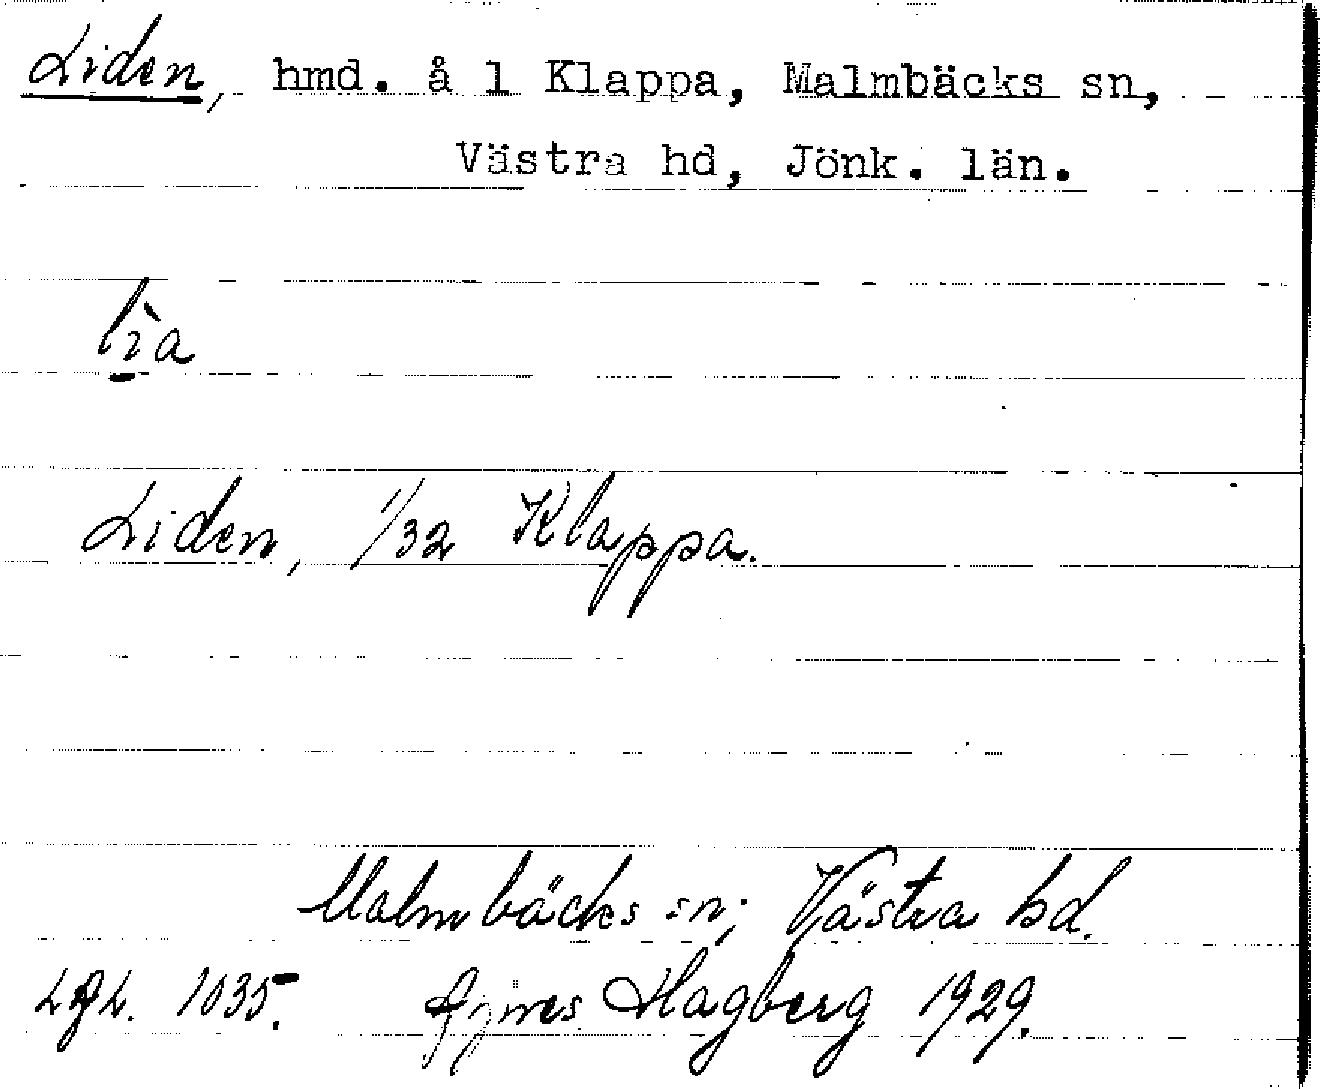 Liden, hmd. å 1 Klappa, Malmbäcks sn,
Västra hd, Jönk. län.
Liden, 1/32 Klappa.
Malmbäcks sn; Västra hd.
1035. Agnes Hagberg 1929.